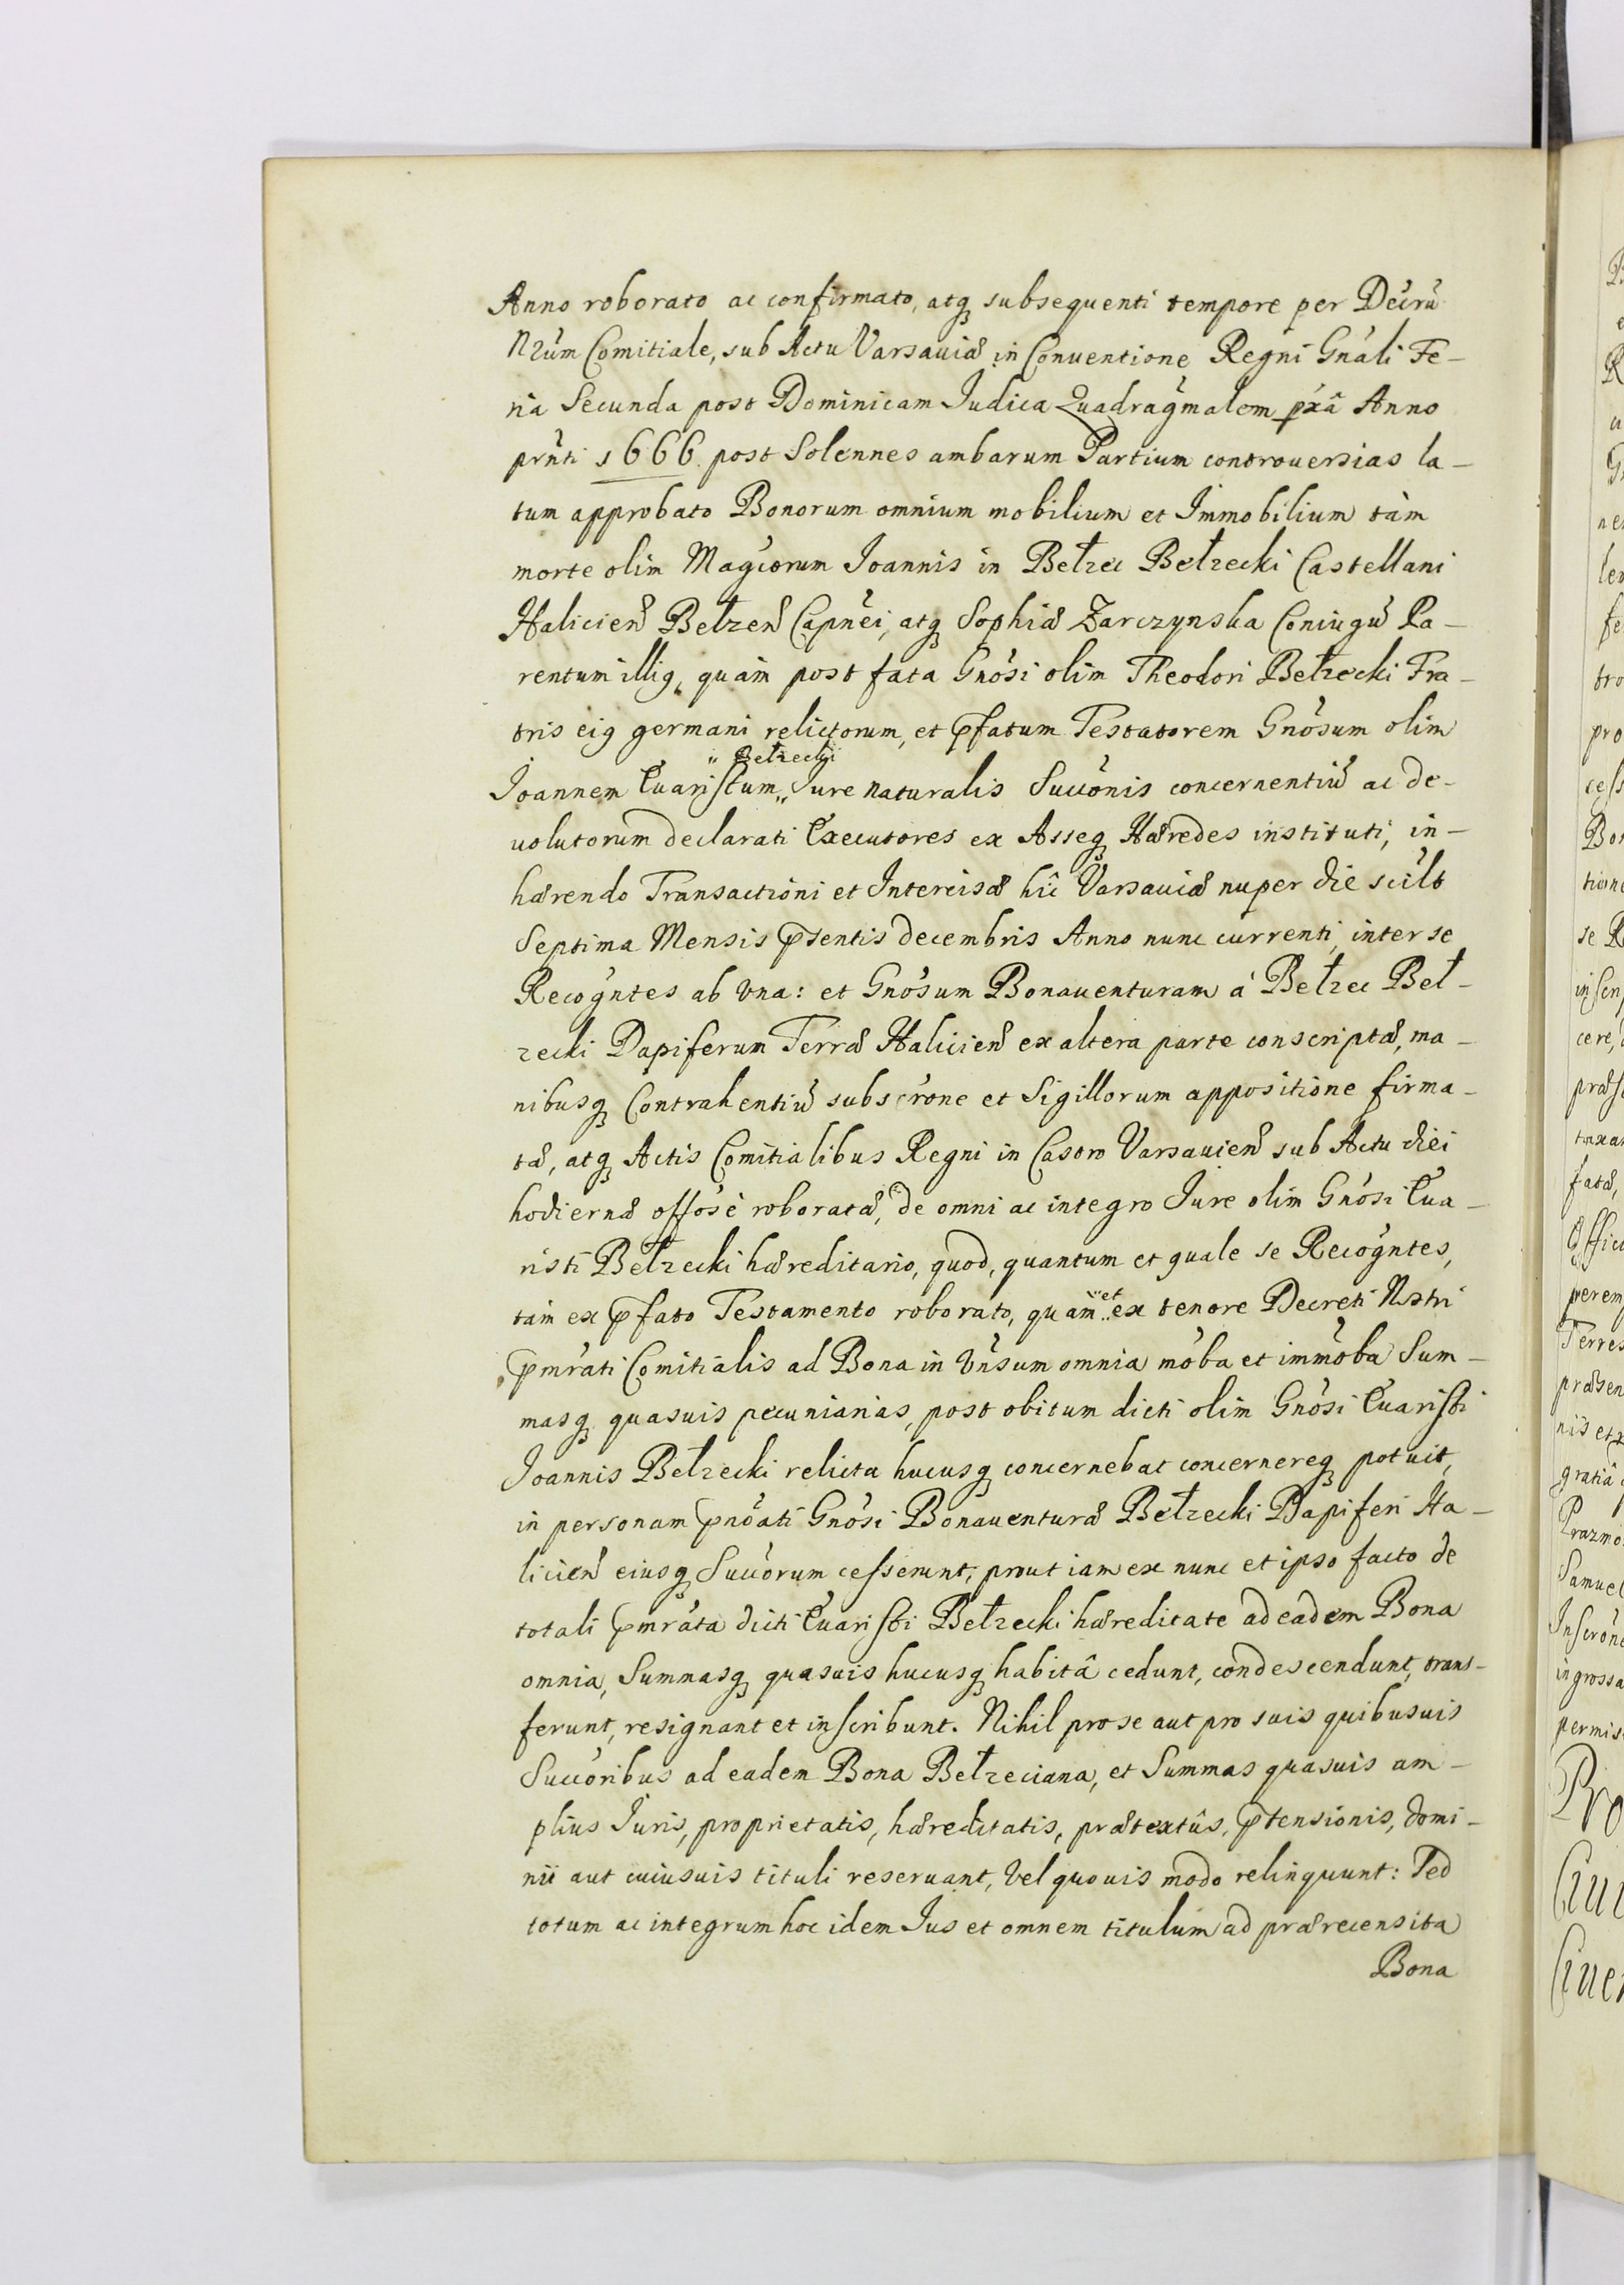 Anno roborato ac confirmato, atq subsequenti tempore per Decrũ
Nrũm Comitiale, sub Actu Varsauiæ in Conuentione Regni Gnáli Fe-
ria Secunda post Dominicam Judica Quadragmalem pxâ Anno
prnti 1666 post Solennes ambarum Partium controuersias la-
tum approbato Bonorum omnium mobilium et Immobilium tàm
morte olim Magcorum Joannis in Bełzec Bełzecki Castellani
Halicien Bełzen Capnei, atq Sophiæ Zarczynska Coniugũ Pa-
rentum illiq, quàm post fata Gnosi olim Theodori Bełzecki Fra-
tris eiq germani relictorum, et pfatum Testatorem Gnosum olim
" Bełzecki
Joannem Euaristum „ Jure naturalis Succonis concernentiũ ac de-
uolutorum declarati Executores ex Asseq Hæredes instituti, in-
hærendo Transactioni et Intercisæ hîc Varsauiæ nuper die scilt
Septima Mensis psentis decembris Anno nunc currenti inter se
Recogntes ab vna: et Gnosum Bonauenturam à Bełzec Beł-
zecki Dapiferum Terræ Halicien ex altera parte conscriptæ, ma-
nibusq Contrahentiũ subscrone et Sigillorum appositione firma-
tæ, atq Actis Comitialibus Regni in Castro Varsauien sub Actu diei
hodiernæ offosè roboratæ, de omni ac integro Jure olim Gnosi Eua-
risti Bełzecki hæreditario, quod, quantum et quale se Recogntes,
et
tàm ex pfato Testamento roborato, quam „ ex tenore Decreti Nostri
pmrati Comitialis ad Bona in Vnsum omnia moba et immoba Sum-
masq quasuis pecuniarias, post obitum dicti olim Gnosi Euaristi
Joannis Bełzecki relicta hucusq concernebat concernereq potuit,
in personam pnoati Gnosi Bonauenturæ Bełzecki Dapiferi Ha-
licien eiusq Succorum cesserunt, prout iam ex nunc et ipso facto de
totali pmrata dicti Euaristi Bełzecki hæreditate ad eadem Bona
omnia, Summasq quasuis hucusq habitâ cedunt, condescendunt, trans-
ferunt, resignant et inscribunt. Nihil pro se aut pro suis quibusuis
Succoribus ad eadem Bona Bełzeciana, et Summas quasuis am-
plius Juris, proprietatis, hæreditatis, prætextûs, ptensionis, domi-
nii aut cuiusuis tituli reseruant, vel quouis modo relinquunt: Sed
totum ac integrum hoc idem Jus et omnem titulum ad prærecensita
Bona